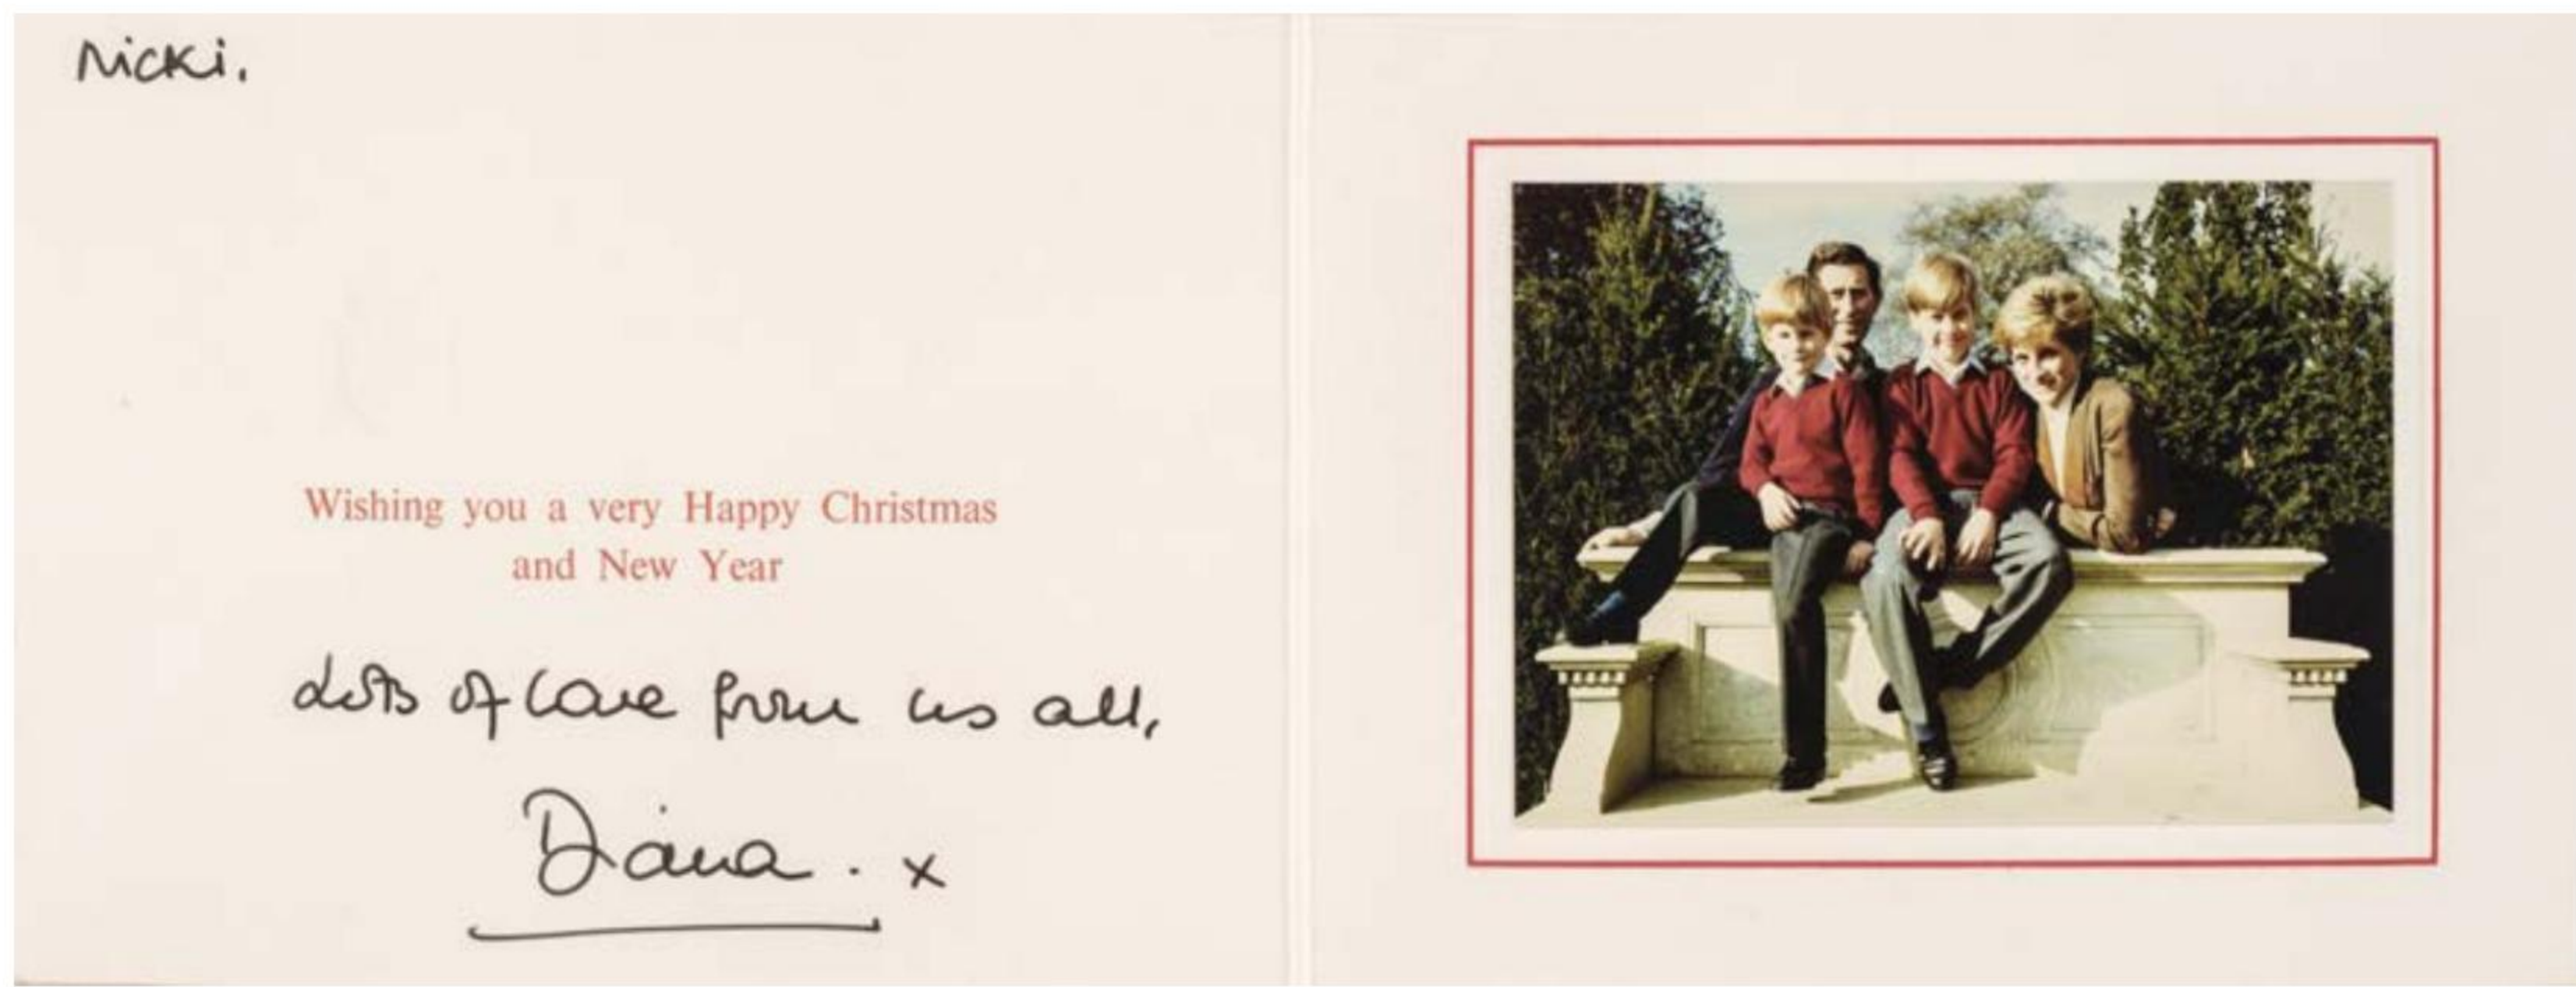 Nicki.
Wishing you a very Happy Christmas
and New Year
Lots of love from us all,
Diana. x